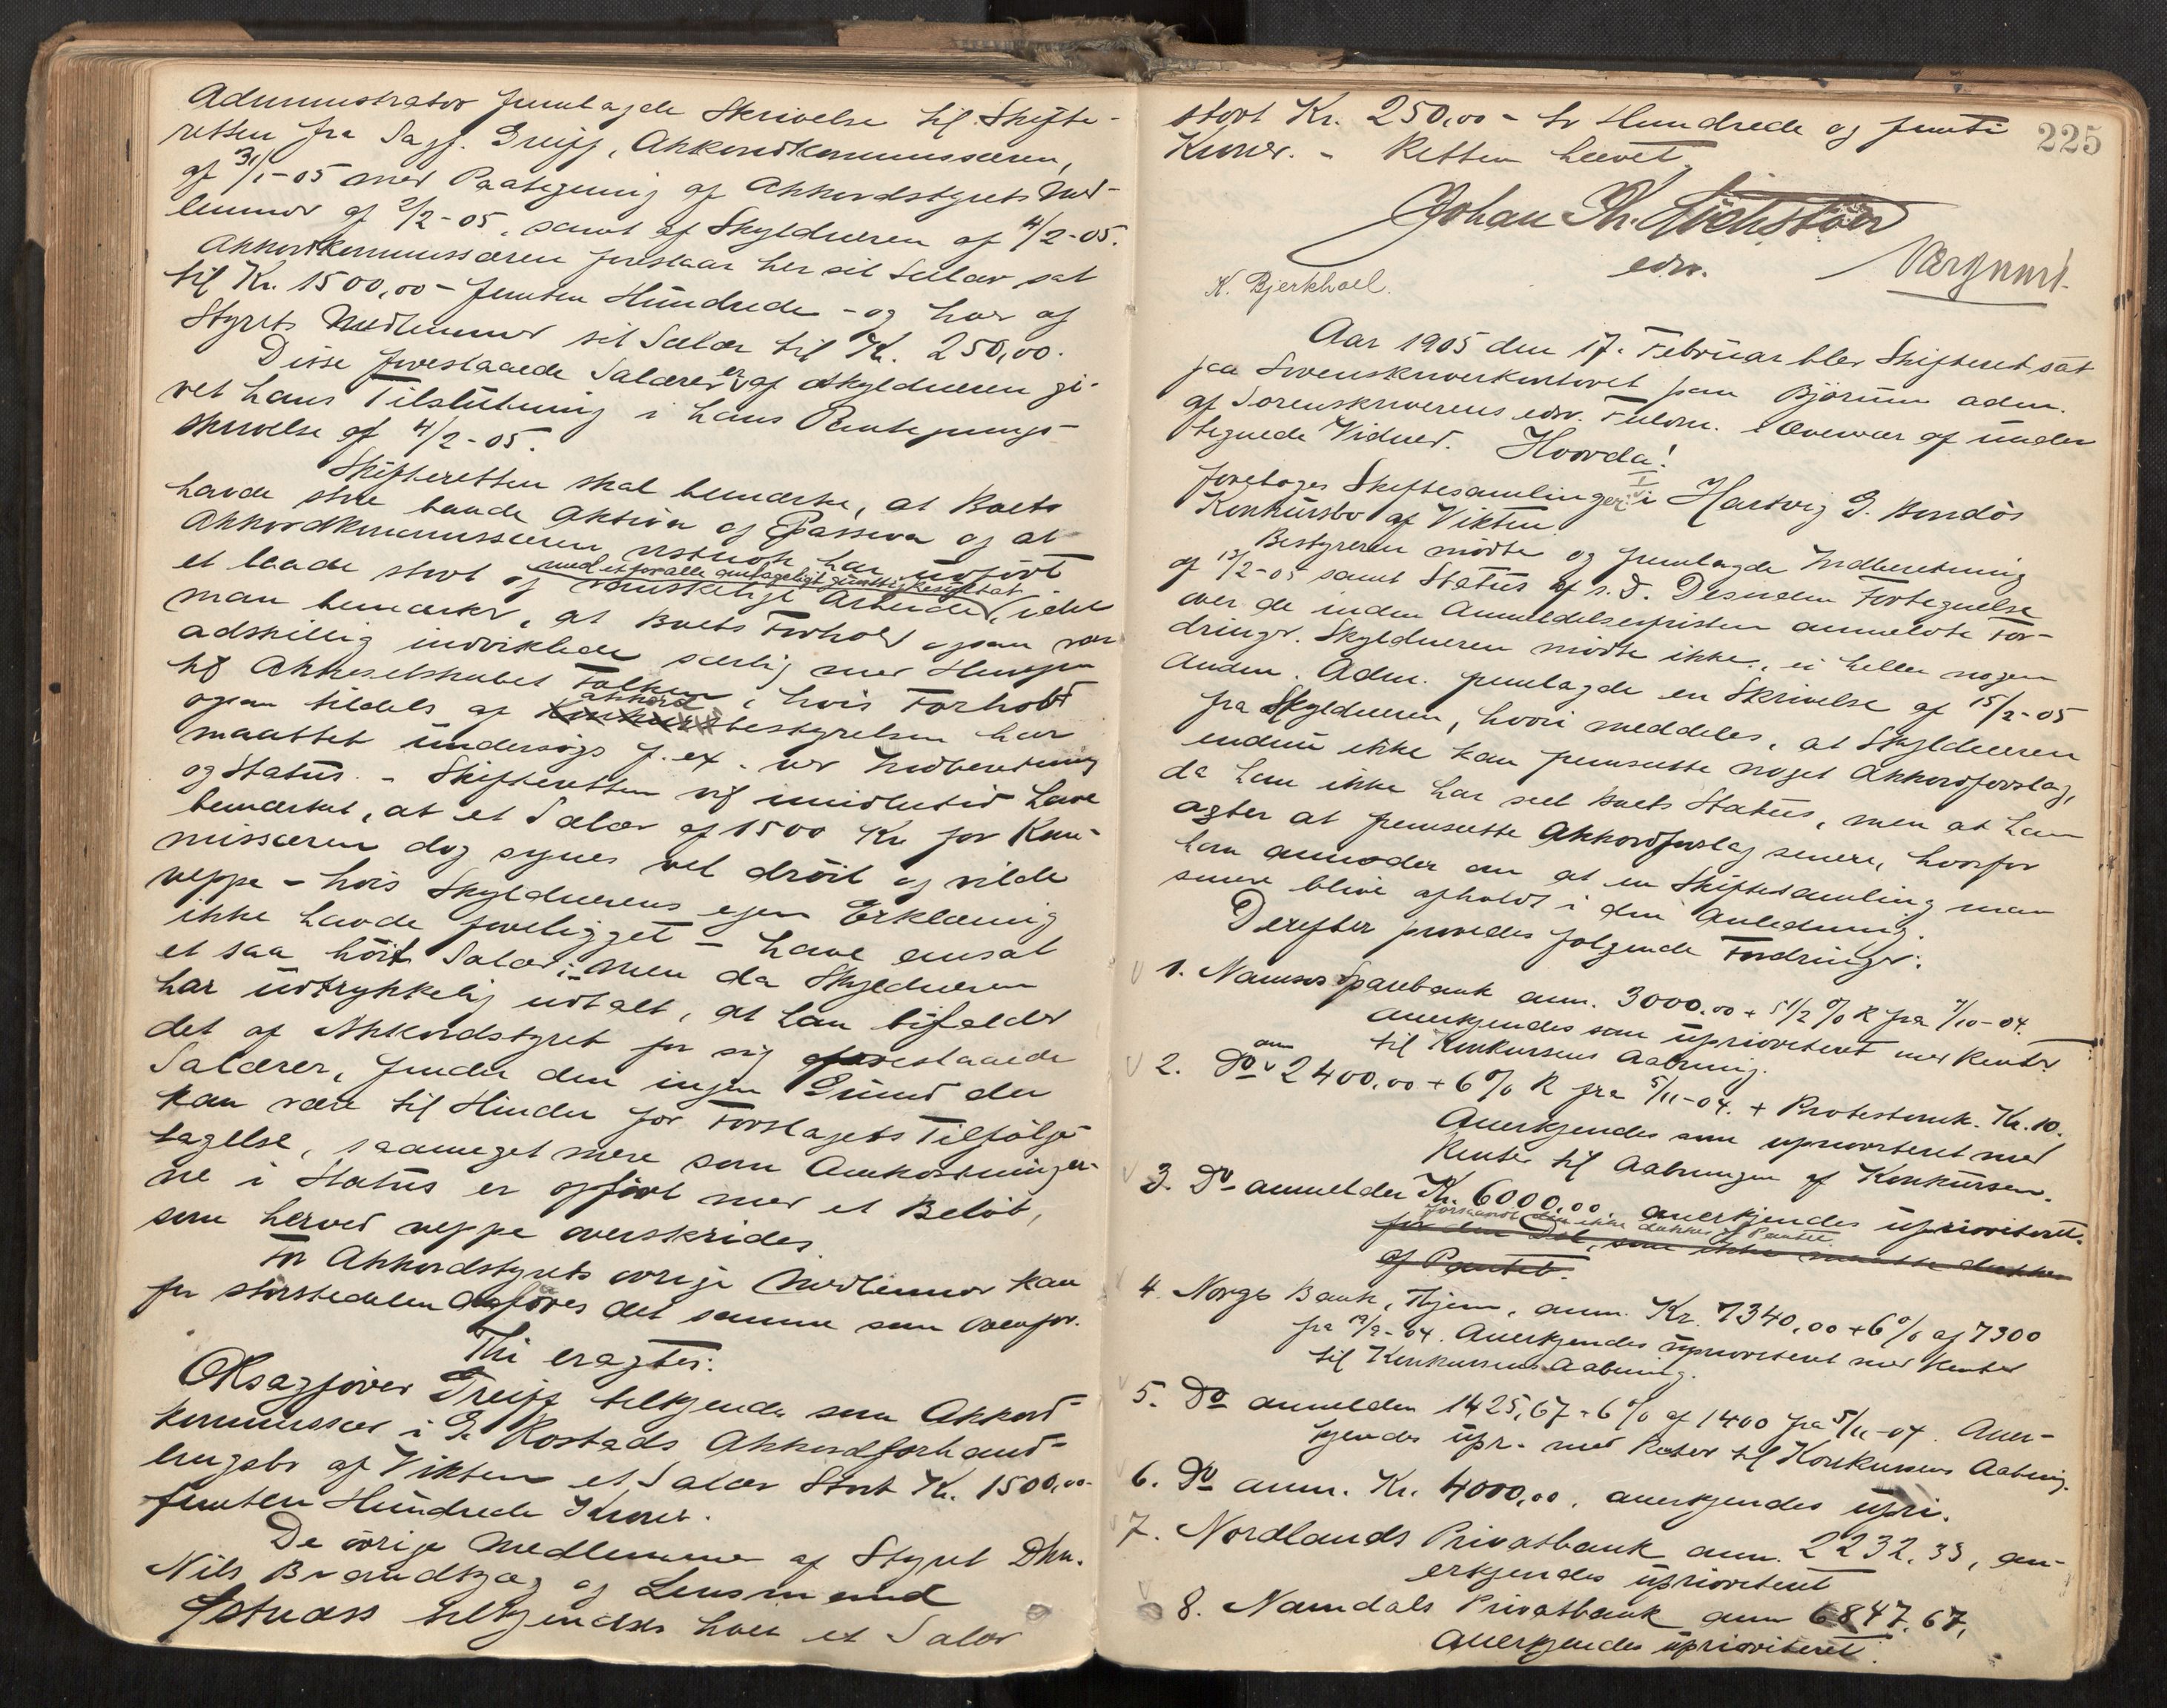 Administrator fremlagde Skrivelse til Skifte-
retten fra Sagf. Greiff, Akkordkommissæren,
af 31/1-05 med Paategning af Akkordstyrets Med-
lemmer af 2/2-05, samt af Skyldneren af 4/2-05.
Akkordkommissæren foreslaar her sit Salær sat
til Kr. 1500,00 - femten Hundrede - og hver af
Styrets Medlemmer sit Salær til Kr. 250,00.
Disse foreslaaede Salærer er af Skyldneren gi-
vet hans Tilslutning i hans Paategnings-
skrivelse af 4/2-05.
Skifteretten skal bemærke, at Boets
havde store baade Aktiva og Passiva og at
Akkordkommissæren har udført
med et for alle antageligt gunstigt Resultat
et baade stort og vanskeligt Arbeide, idet
man bemærker, at Boets Forhold ogsaa var
adskillig indviklede særlig med Hensyn
til Aktieselskabet Falken i hvis Forhold
akkord
ogsaa tildels af Konkursbestyrelsen har
maattet undersøges f. ex. ved Indberetning
og Status. - Skifteretten vil imidlertid have
bemærket, at et Salær af 1500 Kr for Kom-
missæren dog synes vel drøit og vilde
neppe - hvis Skyldnerens egen Erklæring
ikke havde foreligget - have ansat
et saa høit Salær; - Men da Skyldneren
har udtrykkelig udtalt, at han bifalder
det af Akkordstyret for sig foreslaaede
Salærer, findes den ingen Grund der
kan være til Hinder for Forslagets Tilfølge-
tagelse, saameget mere som Omkostninger-
ne i Status er opført med et Beløb,
som herved neppe overskrides.
For Akkordstyrets øvrige Medlemmer kan
for størstedelen anføres det samme som ovenfor.
Thi eragtes:
Oksagfører Greiff tilkjendes som Akkord-
kommissær i G. Rostads Akkordforhand-
lingsbo af Vikten et Salær stort Kr. 1500,00
femten Hundrede Kroner.
De øvrige Medlemmer af Styret Dhr.
Nils Brandtzæg og Lensmand
tilkjendes hver et Salær
stort Kr. 250,00 - to Hundrede og femti
225
Kroner. - Retten hævet.
Johan Th.
edsv.
K. Bjerkhoel.
Aar 1905 den 17. Februar blev Skifteret sat
paa Sorenskriverkontoret paa Bjørum adm.
af Sorenskriverens edsv. Fuldm. i Overvær af under
tegnede Vidner. Hvorda!
foretages Skiftesamlinger i Hartvig G. Bondøs
Konkursbo af Vikten.
Bestyreren mødte og fremlagde Indberetning
af 13/2-05 samt Status af s. D. Desuden Fortegnelse
over de inden Anmeldelsesfristen anmeldte For-
dringer. Skyldneren mødte ikke, ei heller nogen
Anden. Adm. fremlagde en Skrivelse af 15/2-05
fra Skyldneren, hvori meddeles, at Skyldneren
endnu ikke kan fremsætte noget Akkordforslag,
da han ikke har seet Boets Status, men at han
agter at fremsætte Akkordforslag senere, hvorfor
han anmoder om at en Skiftesamling maa
senere blive afholdt i den Anledning.
Derefter prøvedes følgende Fordringer:
1. Namsos Sparebank anm. 3000,00 + 5 1/2 % R fra 7/10-04.
anerkjendes som uprioriteret med Renter
til Konkursens Aabning.
2. Do anm 2400,00 + 6 % R fra 5/11-04. + Protestomk. Kr. 10.
Anerkjendes som uprioriteret med
Renter til Aabningen af Konkursen.
3. Do anmelder Kr. 6000,00. anerkjendes uprioriteret.
forsaavidt den ikke dækkes af Pantet.
for den Del, som ikke maatte dækkes
af Pantet.
4. Norges Bank, Hjem., anm. Kr. 7340,00 + 6 % af 7300
fra 19/9-04. Anerkjendes uprioriteret med Renter
til Konkursens Aabning.
5. Do anmelder 1425,67 + 6 % af 1400 fra 5/11-04. Aner-
kjendes upr. med Renter til Konkursens Aabning.
6. Do anm. Kr. 4000,00. anerkjendes upri.
7. Nordlands Privatbank anm. 2232,33, an-
erkjendes uprioriteret
8. Namdals Privatbank anm 6847,67,
anerkjendes uprioriteret.